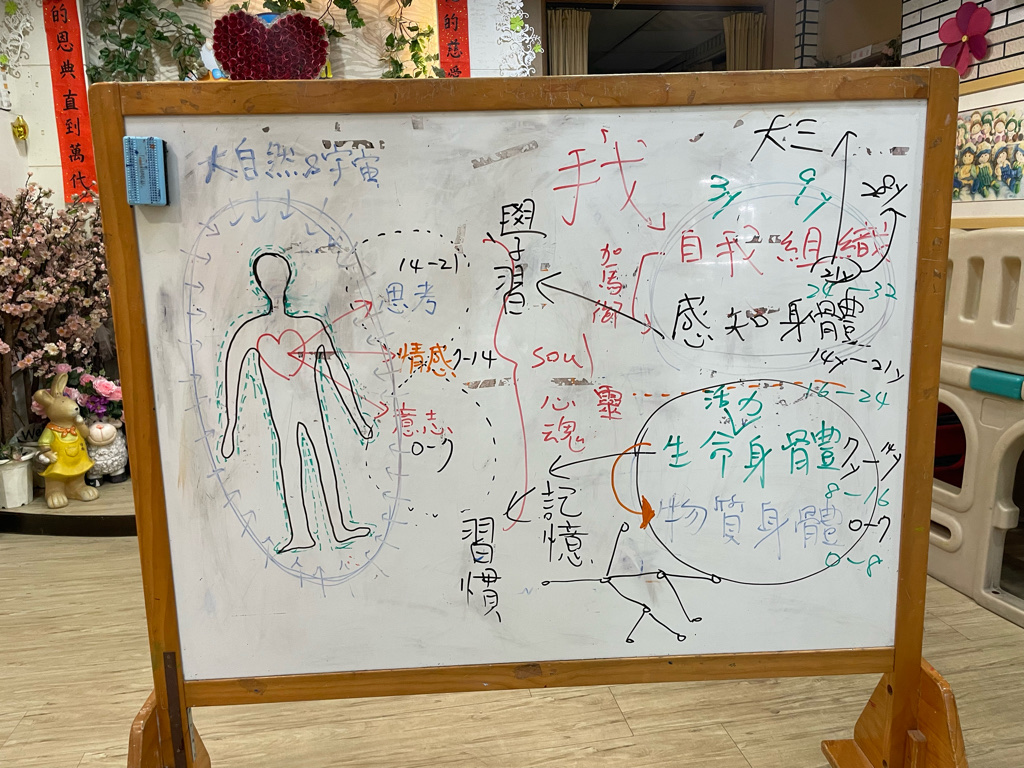 的恩典直到萬代
的慈愛
大自然&宇宙
14-21
思考
情感 7-14
意志
0-7
學習
習慣
記憶
我
加馬衝
soul
心魂
靈
大三
3y 9y
28y
自我組織
21y
24-32
感知身體
14y-21y
16-24
活力
生命身體
7y-14y
8-16
物質身體
0-7
0-8